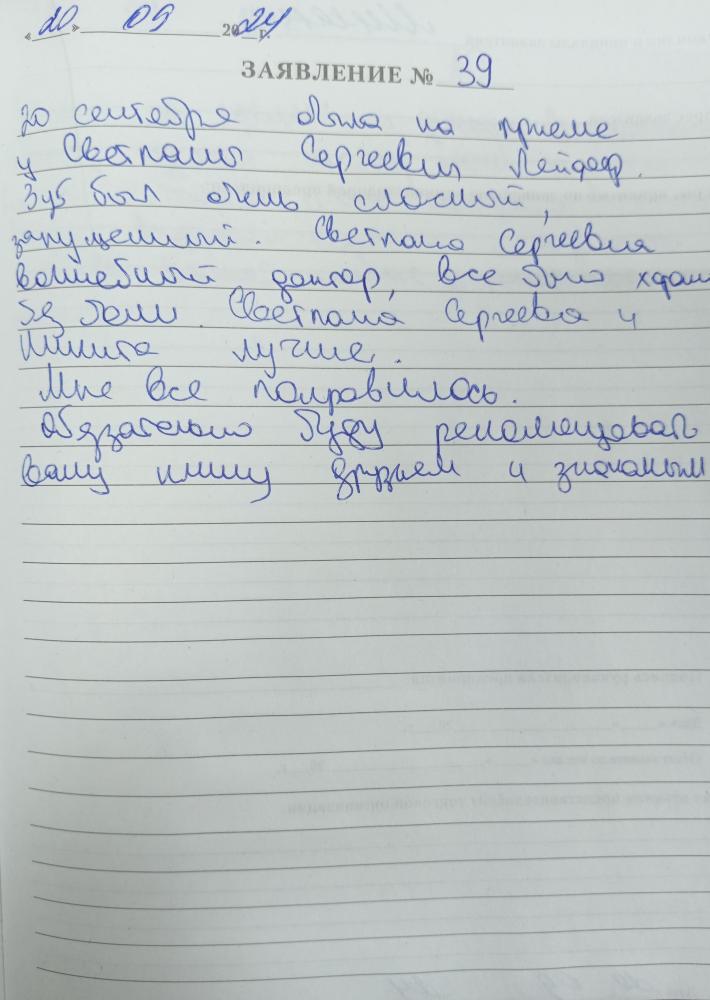 «20» 09 2024 г.
ЗАЯВЛЕНИЕ № 39
20 сентября была на приеме
у Светланы Сергеевны
Зуб был очень сложный,
запущенный. Светлана Сергеевна
волшебный доктор, все было
без боли. Светлана Сергеевна и
лучше.
Мне все понравилось.
Обязательно буду рекомендовать
вашу друзьям и знакомым